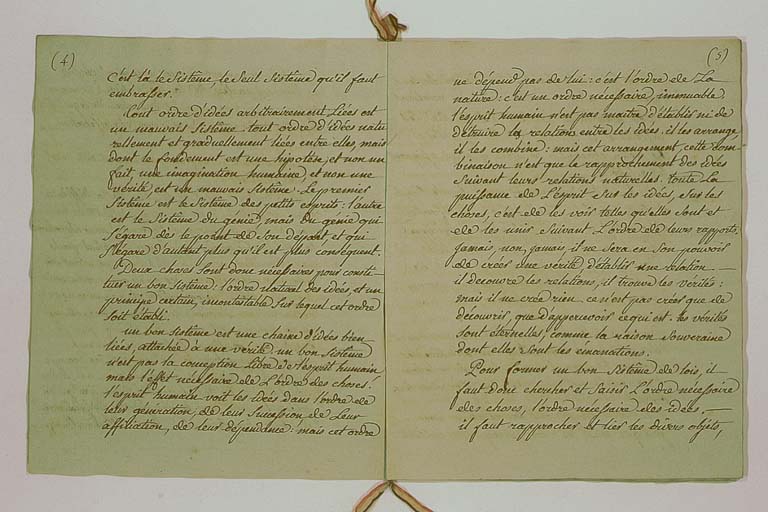 (4)
C'est là le Sistême, le Seul Sistême qu'il faut
embrasser.
Tout ordre d'idées arbitrairement Liées est
un mauvais Sistême. tout ordre d'idées natu
rellement et graduellement liées entre elles, mais
dont le fondement est une hipotèse, et non un
fait, une imagination humaine, et non une
vérité, est un mauvais Sistême. Le premier
Sistême est le Sistême des petits esprits: l'autre
est le Sistême du génie, mais du génie qui
S'égare dès le point de Son départ, et qui
S'égare d'autant plus qu'il est plus conséquent.
Deux choses Sont donc nécessaires pour consti-
tuer un bon Sistême: l'ordre naturel des idées, et un
principe certain, incontestable Sur lequel cet ordre
Soit établi.
un bon Sistême est une chaine d'idées bien
liées, attachée à une vérité. un bon Sistême
n'est pas la conception Libre de l'esprit humain
mais l'effet nécessaire de L'ordre des choses.
l'esprit humain voit les idées dans l'ordre de
leur génération, de leur Sucession de Leur
affiliation, de leur dépendance: mais cet ordre
(5)
ne dépend pas de lui: c'est l'ordre de La
nature: c'est un ordre nécessaire, immuable.
l'esprit humain n'est pas maitre d'établir ni de
détruire les relations entre les idées: il les arrange
il les combine: mais cet arrangement, cette com
binaison n'est que le rapprochement des idées
Suivant leurs relations naturelles. toute La
puissance de L'esprit Sur les idées, Sur les
choses, c'est de les voir telles qu'elles Sont et
de les unir Suivant L'ordre de leurs rapports.
Jamais, non, jamais il ne Sera en Son pouvoir
de créer une vérité, d'établir une relation —
il découvre les relations, il trouve les vérités:
mais il ne crée rien. ce n'est pas créer que de
découvrir, que d'appercevoir ce qui est. les vérités
Sont éternelles, comme la raison Souveraine
dont elles Sont les émanations.
Pour former un bon Sistême de lois, il
faut donc chercher et Saisir L'ordre nécessaire
des choses, l'ordre nécessaire des idées. —
il faut rapprocher et lier les divers objets,